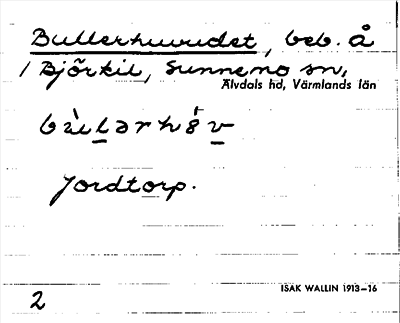 Bullerhuvudet, beb. å
/ Björkil, Sunnemo sn,
Älvdals hd, Värmlands län
bu̇llərhȯ̈v
Jordtorp.
ISAK WALLIN 1913–16
2